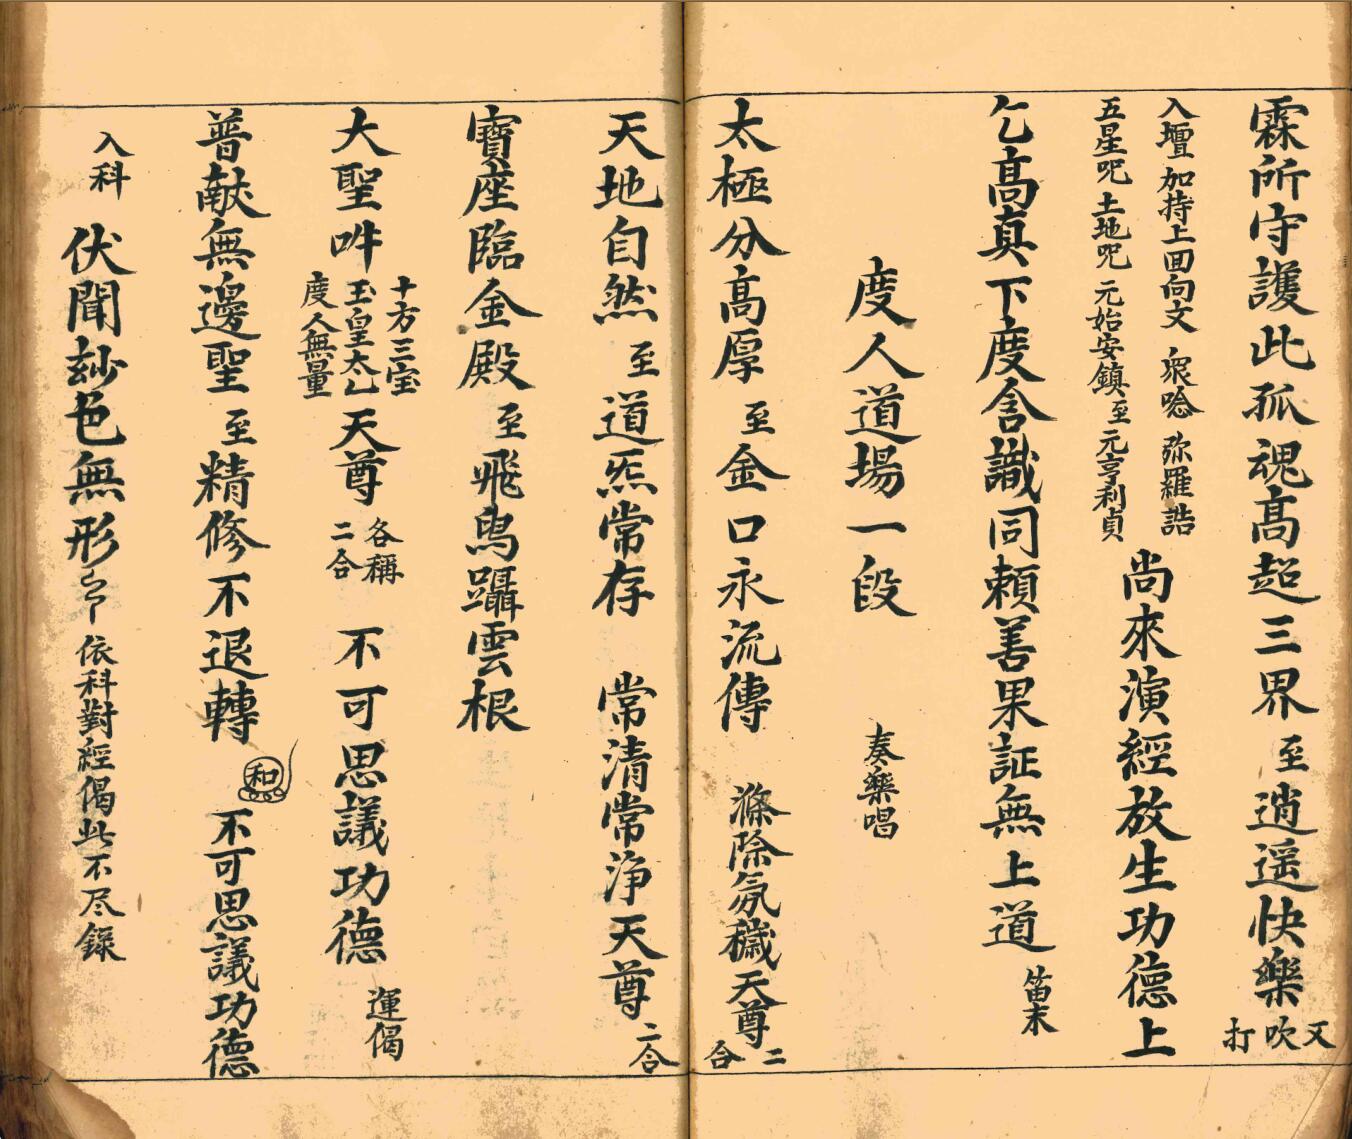 霖所守護此孤魂高超三界至逍遥快樂又吹打
入壇加持上回向文 衆唸 弥羅誥
五星咒 土地咒 元始安鎮至元亨利貞
尚來演經放生功德上
乞高真下度含識同賴善果証無上道笛末
度人道場一段 奏樂唱
太極分高厚至金口永流傳 滌除氛穢天尊二合
天地自然至道炁常存 常清常净天尊二合
寶座臨金殿至飛舄躡雲根
大聖吽
十方三宝
玉皇太乙
度人無量
天尊各稱二合 不可思議功德 運偈
普献無邊聖至精修不退轉 和 不可思議功德
入科 伏聞玅色無形 依科對經偈此不尽錄